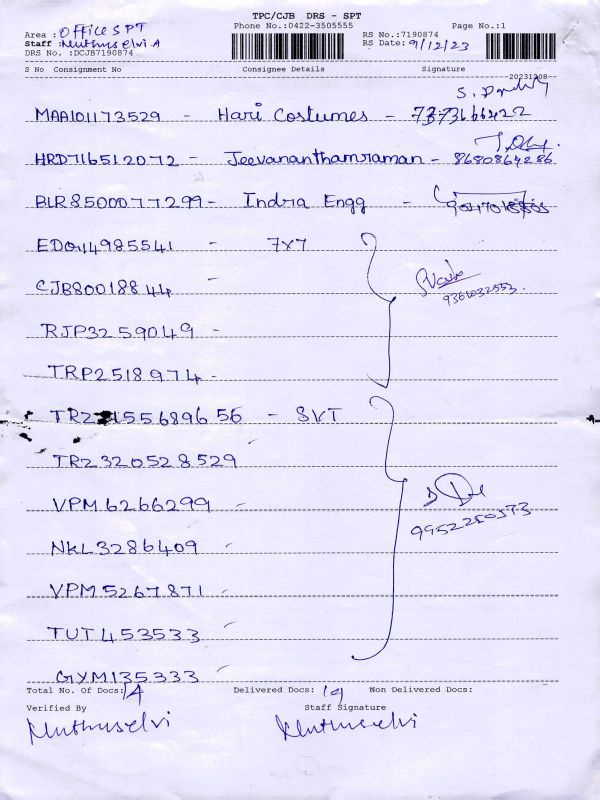 TPC/CJB DRS - SPT
Phone No.:0422-3505555 Page No.:1
Area : Office SPT
RS No.:7190874
Staff : Muthuselvi A
RS Date: 9/12/23
DRS No. :DCJB7190874
S No Consignment No Consignee Details Signature
20231208
MAA101173529 - Hari Costumes - 7373666422
HRD716512072 - Jeevananthamraman - 8680864286
BLR8500077299 - Indra Engg -
EDO114985541 - 7x7
CJB80018844 -
9361032553
RJP3259049 -
TRP2518974 -
556896 56 - SVT
TRZ320528529
VPM6266299
9952250573
NKL3286409
VPM5267871
TUT453533
GYM135333
Total No. Of Docs: 14 Delivered Docs: 19 Non Delivered Docs:
Verified By Staff Signature
Muthuselvi Muthuselvi